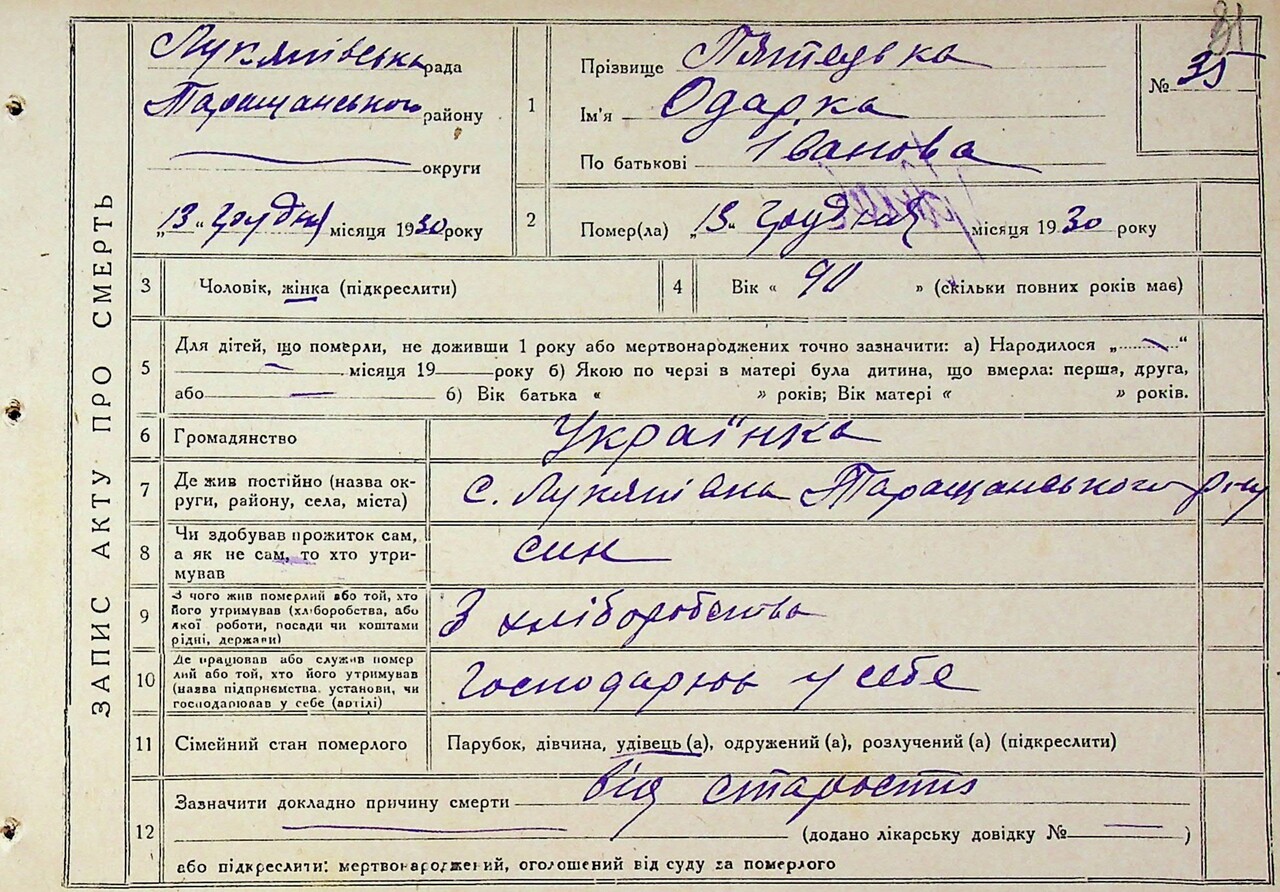 31
ЗАПИС АКТУ ПРО СМЕРТЬ
Лукянівська рада
Таращанського району
округи
„13“ грудня місяця 1930 року
1
Прізвище
Ім'я Одарка
По батькові Іванова
№ 35
2
Помер(ла) „13“ грудня місяця 1930 року
3
Чоловік, жінка (підкреслити)
4
Вік « 90 » (скільки повних років має)
5
Для дітей, що померли, не доживши 1 року або мертвонароджених точно зазначити: а) Народилося „ “
місяця 19 року б) Якою по черзі в матері була дитина, що вмерла: перша, друга,
або б) Вік батька « » років; Вік матері « » років.
6
Громадянство
Українка
7
Де жив постійно (назва ок-
руги, району, села, міста)
с. Лукянівка Таращанського р-ну
8
Чи здобував прожиток сам,
а як не сам, то хто утри-
мував
син
9
З чого жив померлий або той, хто
його утримував (хліборобства, або
якої роботи, посади чи коштами
рідні, держави)
З хліборобства
10
Де працював або служив помер
лий або той, хто його утримував
(назва підпрнємства, установи, чи
господарював у себе (артілі)
Господарює у себе
11
Сімейний стан померлого
Парубок, дівчина, удівець (а), одружений (а), розлучений (а) (підкреслити)
12
Зазначити докладно причину смерти від старости
(додано лікарську довідку № )
або підкреслити: мертвонароджений, оголошений від суду за померлого